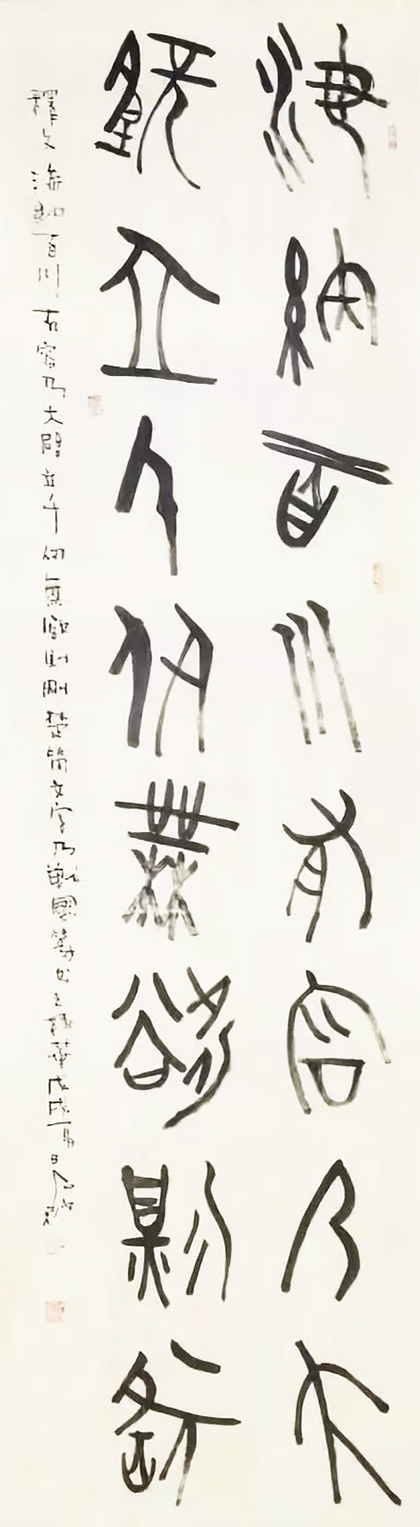 海納百川有容乃大
壁立千仞無欲則剛
釋文海納百川有容乃大壁立千仞無欲則剛楚簡文字乃戰國篆書之精華戊戌夏日